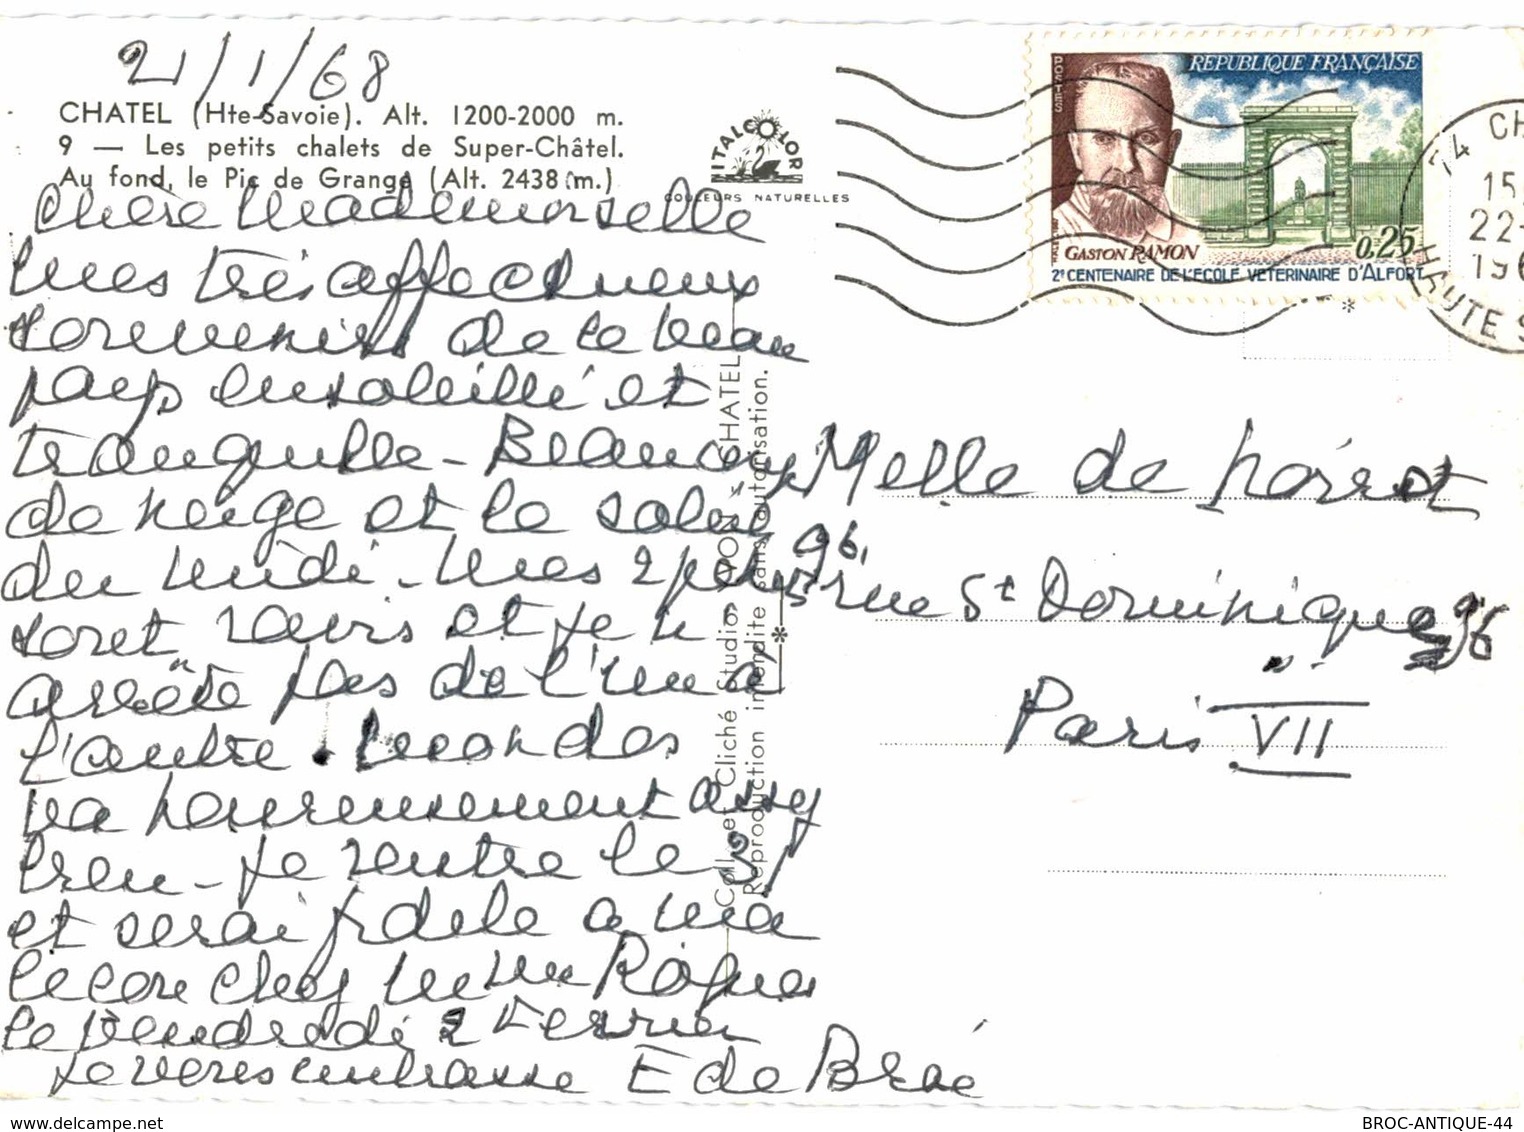 21/1/68
CHATEL (Hte-Savoie). Alt. 1200-2000 m.
9 — Les petits chalets de Super-Châtel.
Au fond, le Pic de Grange (Alt. 2438 m.)
ITALCOLOR
COULEURS NATURELLES
Chère Mademoiselle
mes très affectueux
souvenirs de ce beau
pays ensoleillé et
tranquille - Beaucoup
de neige et le soleil
du midi - mes 2 petits
sont ravis et je n'
arrête pas de l'un à
l'autre.
va heureusement assez
bien - je rentre le 31
et serai fidèle à ma
leçon chez Mme
le vendredi 2 Février
je vous embrasse E de
Coll. et Cliché Studio PON - CHATEL
Reproduction interdite sans autorisation.
POSTES
REPUBLIQUE FRANÇAISE
GASTON RAMON
0,25
2e CENTENAIRE DE L'ECOLE VETERINAIRE D'ALFORT
74 CH
15
22-
196
HAUTE S
Melle de
96, rue St Dominique 96
Paris VII
BROC-ANTIQUE-44